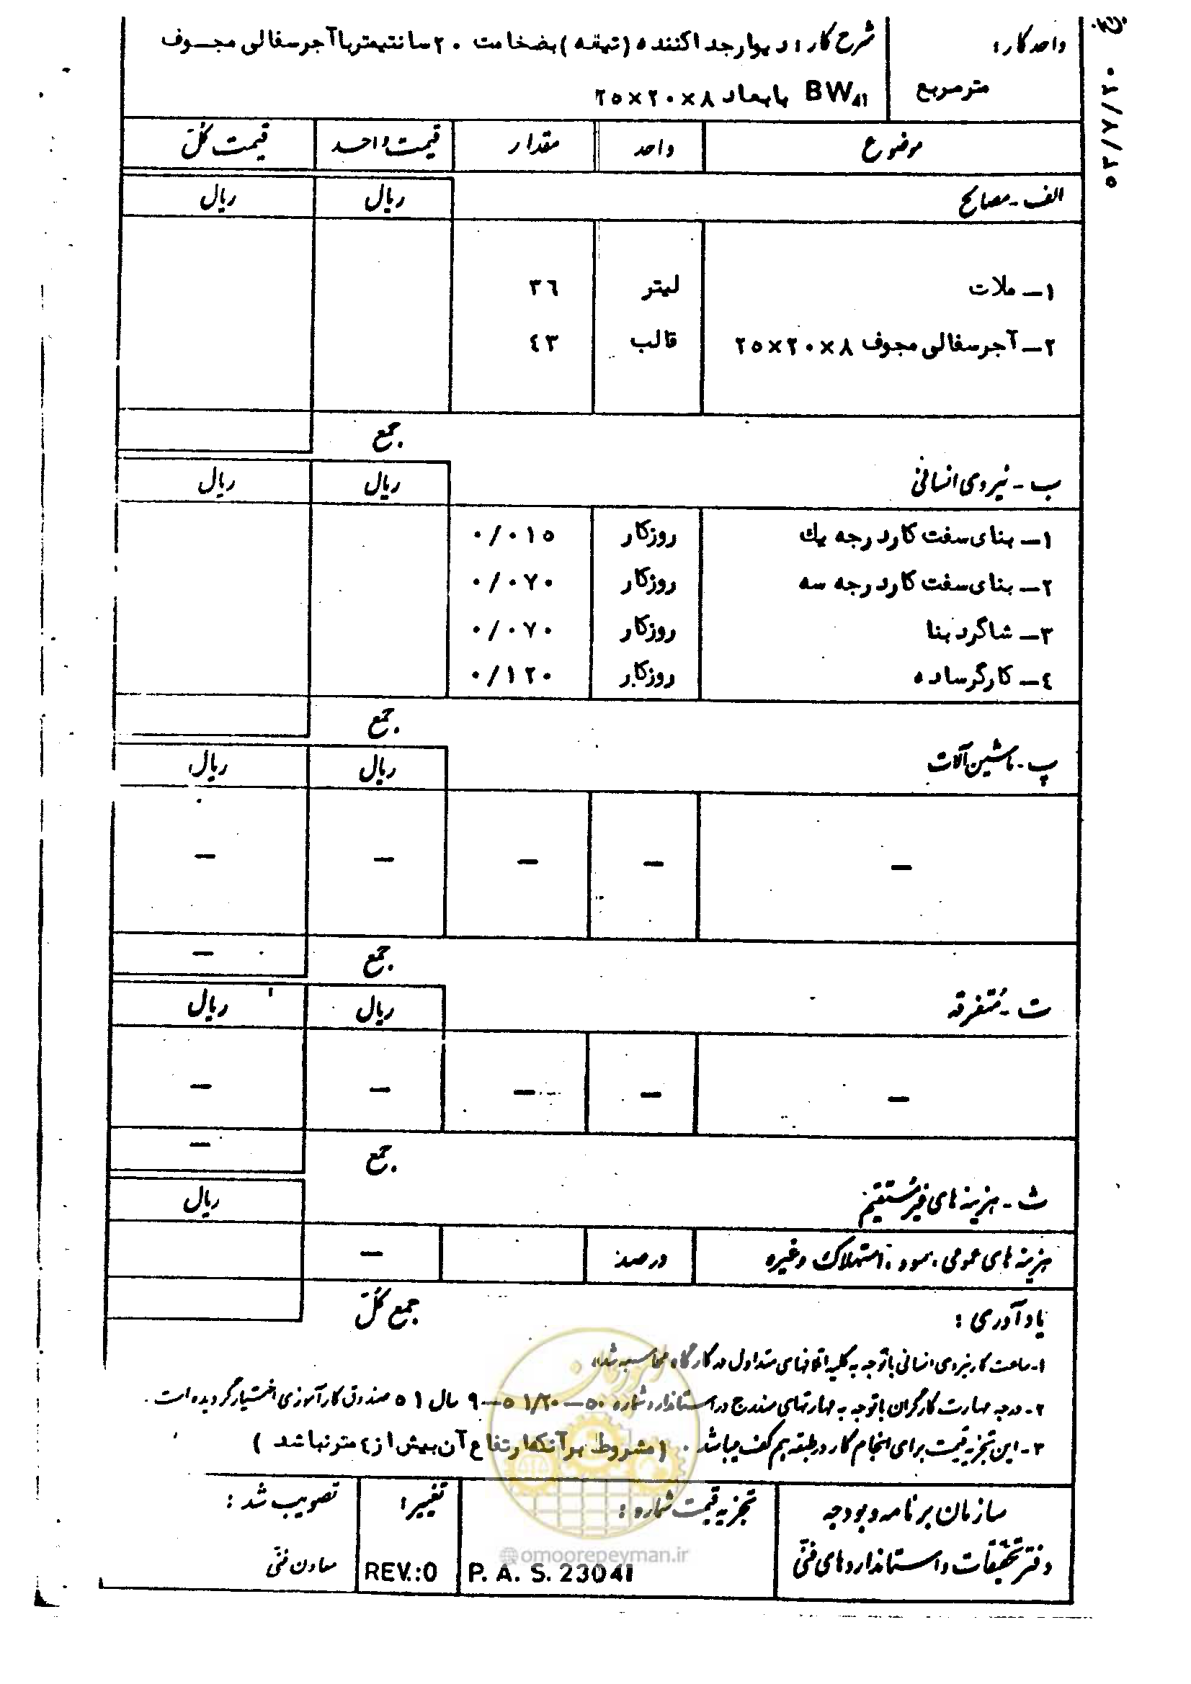 واحد کار :
شرح کار : دیوار جدا کننده (تیغه) بضخامت ۲۰ سانتیمتر با آجر سفالی مجوف
متر مربع
BW41 بابعاد ۸×۲۰×۲۵
۵۳/۷/۲۰
موضوع واحد مقدار قیمت واحد قیمت کل
الف - مصالح ریال ریال
۱- ملات لیتر ۳۶
۲- آجر سفالی مجوف ۸×۲۰×۲۵ قالب ۴۳
جمع
ب - نیروی انسانی ریال ریال
۱- بنای سفت کار درجه یك روزکار ۰/۰۱۵
۲- بنای سفت کار درجه سه روزکار ۰/۰۷۰
۳- شاگرد بنا روزکار ۰/۰۷۰
۴- کارگر ساده روزکار ۰/۱۲۰
جمع
پ - ماشین آلات ریال ریال
— — — — —
جمع —
ت - متفرقه ریال ریال
— — — — —
جمع —
ث - هزینه های غیر مستقیم ریال
هزینه های عمومی ، سود ، استهلاک وغیره درصد —
جمع کل
یادآوری :
۱- ساعت کار نیروی انسانی با توجه به کلیه اتلافهای متداول در کارگاه محاسبه شده
۲- درجه مهارت کارگران با توجه به مهارتهای مندرج در استاندارد شماره ۵۰-۱/۲۰ ۵-۹ سال ۵۱ صندوق کارآموزی اختیار گردیده است .
۳- این تجزیه قیمت برای انجام کار در طبقه هم کف میباشد . (مشروط بر آنکه ارتفاع آن بیش از ۴ متر نباشد )
سازمان برنامه و بودجه
دفتر تحقیقات و استانداردهای فنی
تجزیه قیمت شماره :
P. A. S. 23041
تغییر :
REV.:0
تصویب شد :
معاون فنی
امور پیمان
@omoorepeyman.ir